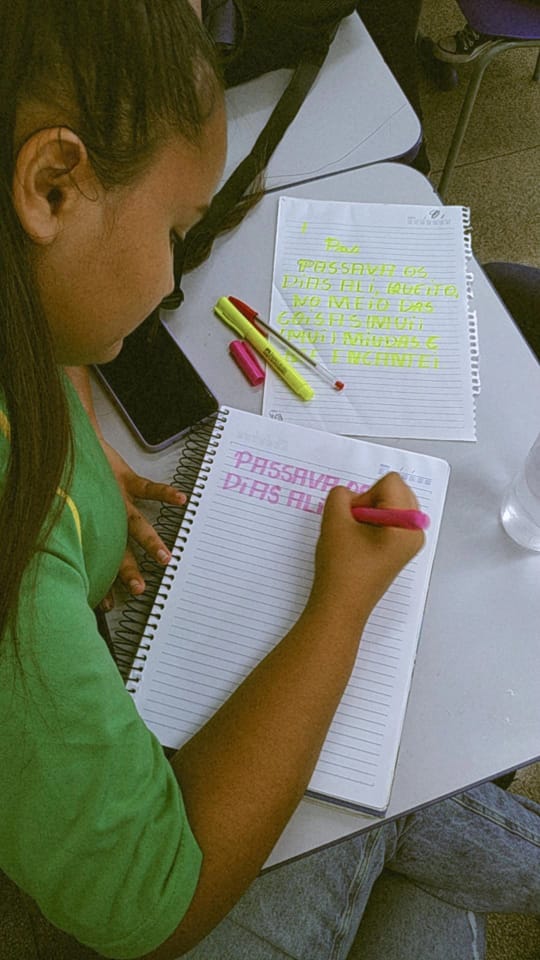 PASSAVA OS
DIAS ALI, QUEITO,
NO MEIO DAS
COISAS
MIUDAS E
ENCANTEI
PASSAVA OS
DIAS ALI